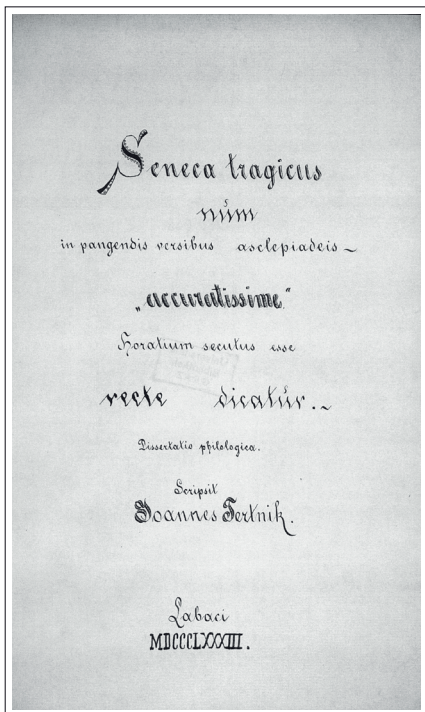 Seneca tragicus
num
in pangendis versibus asclepiadeis ~
„accuratissime“
Horatium secutus esse
recte dicatur. ~
Dissertatio philologica.
Scripsit
Joannes Tertnik.
Labaci
MDCCCLXXXIII.